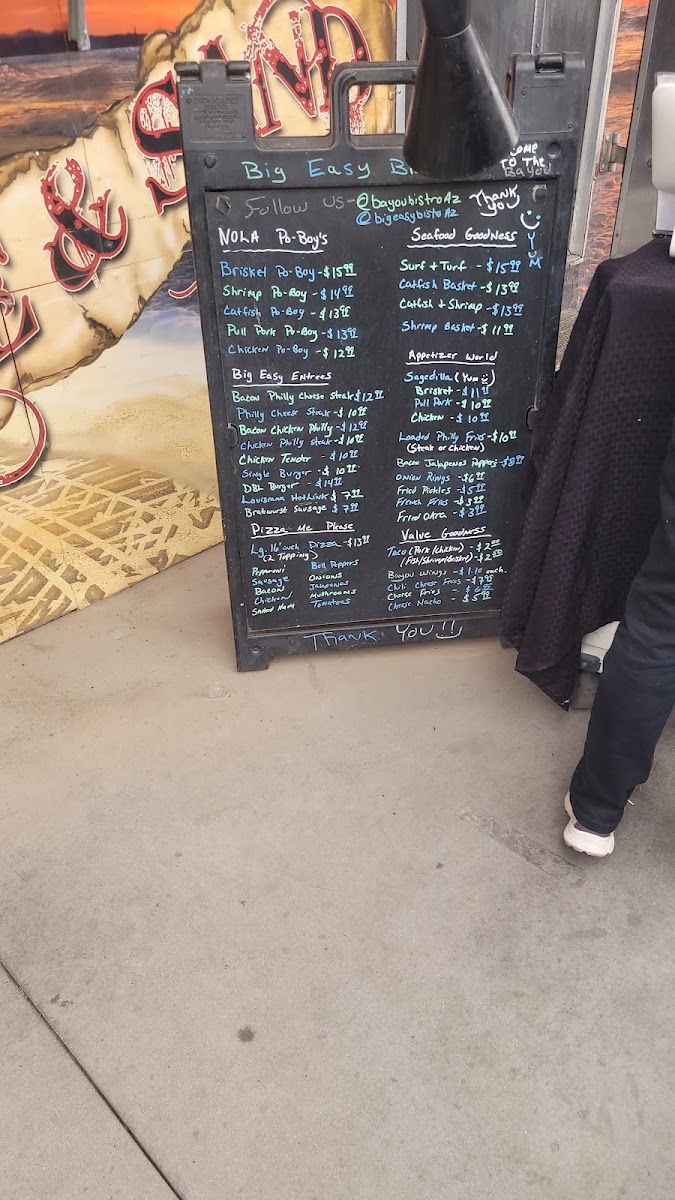 & SAND
Big Easy
Come
To The
Bayou
Follow us - @bayoubistroAz
@bigeasybistroAz
Thank
you
YUM
NOLA Po-Boy's
Brisket Po-Boy - $15.99
Shrimp Po-Boy - $14.99
Catfish Po-Boy - $13.99
Pull Pork Po-Boy - $13.99
Chicken Po-Boy - $12.99
Big Easy Entrees
Bacon Philly Cheese Steak $12.99
Philly Cheese Steak - $10.99
Bacon Chicken Philly - $12.99
Chicken Philly Steak - $10.99
Chicken Tender - $10.99
Single Burger - $10.99
DBL Burger - $14.99
Louisiana Hotlink $7.99
Bratwurst Sausage $7.99
Pizza Me Please
Lg. 16 inch Pizza - $13.99
(2 Topping)
Pepperoni
Sausage
Bacon
Chicken
Ham
Bell Peppers
Onions
Jalapenos
Mushrooms
Tomatoes
Seafood Goodness
Surf + Turf - $15.99
Catfish Basket - $13.99
Catfish + Shrimp - $13.99
Shrimp Basket - $11.99
Appetizer World
Sagedilla (Yum)
Brisket - $11.99
Pull Pork - $10.99
Chicken - $10.99
Loaded Philly Fries - $10.99
(Steak or Chicken)
Bacon Jalapenos Poppers - $8.99
Onion Rings - $6.99
Fried Pickles - $5.99
French Fries - $3.99
Fried Okra - $3.99
Value Goodness
Taco (Pork/Chicken) - $2.00
(Fish/Shrimp/Brisket) - $2.50
Bayou Wings - $1.10 each.
Chili Cheese Fries - $7.99
Cheese Fries - $6.99
Cheese Nacho - $5.99
Thank You!!